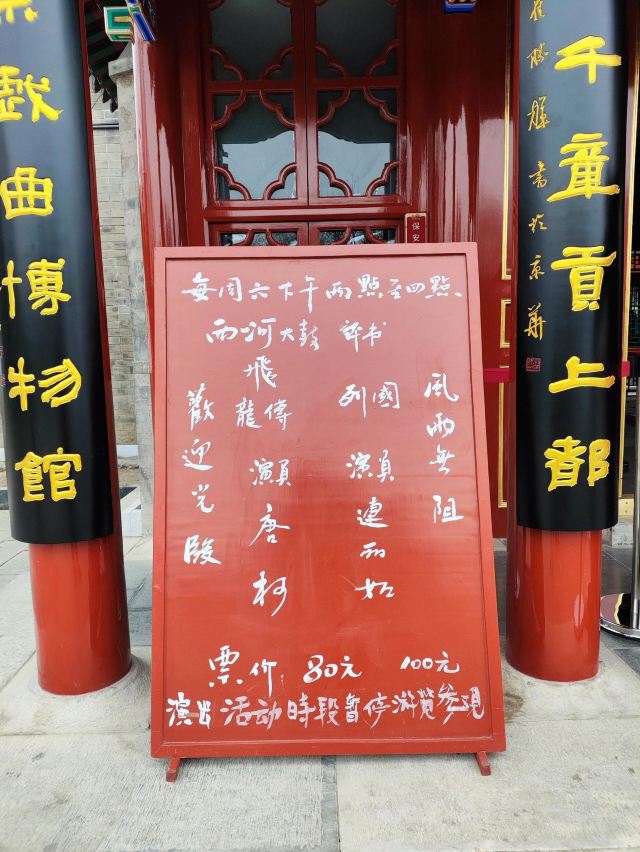 戲曲博物館
千童貢上都
書於京華
保安
每周六下午两點至四點
西河大鼓 評书
風雨無阻
列國
演員連丽如
飛龍傳
演員唐柯
歡迎光臨
票价: 80元 100元
演出活动時段暫停游覽參观